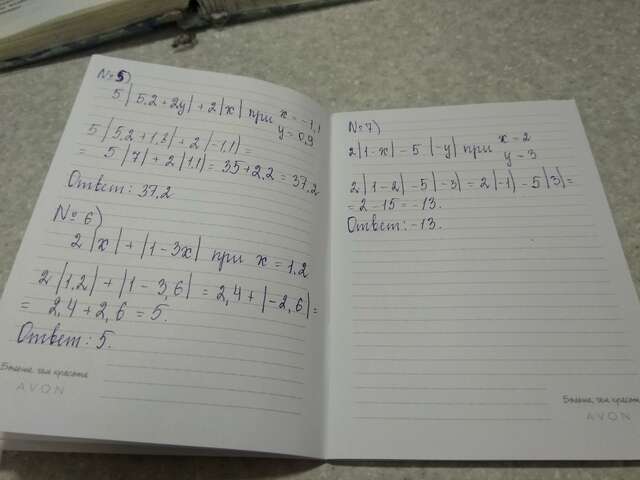 №5)
5|5,2+2y|+2|x| при x=-1,1
y=0,9
5|5,2+1,8|+2|-1,1|=
= 5|7|+2|1,1|=35+2,2=37,2
Ответ: 37,2
№6)
2|x|+|1-3x| при x=1,2
2|1,2|+|1-3,6|=2,4+|-2,6|=
= 2,4+2,6=5.
Ответ: 5.
Больше, чем красота
AVON
№7)
2|1-x|-5|-y| при x=2
y=3
2|1-2|-5|-3|=2|-1|-5|3|=
=2-15=-13.
Ответ:-13.
Больше, чем красота
AVON